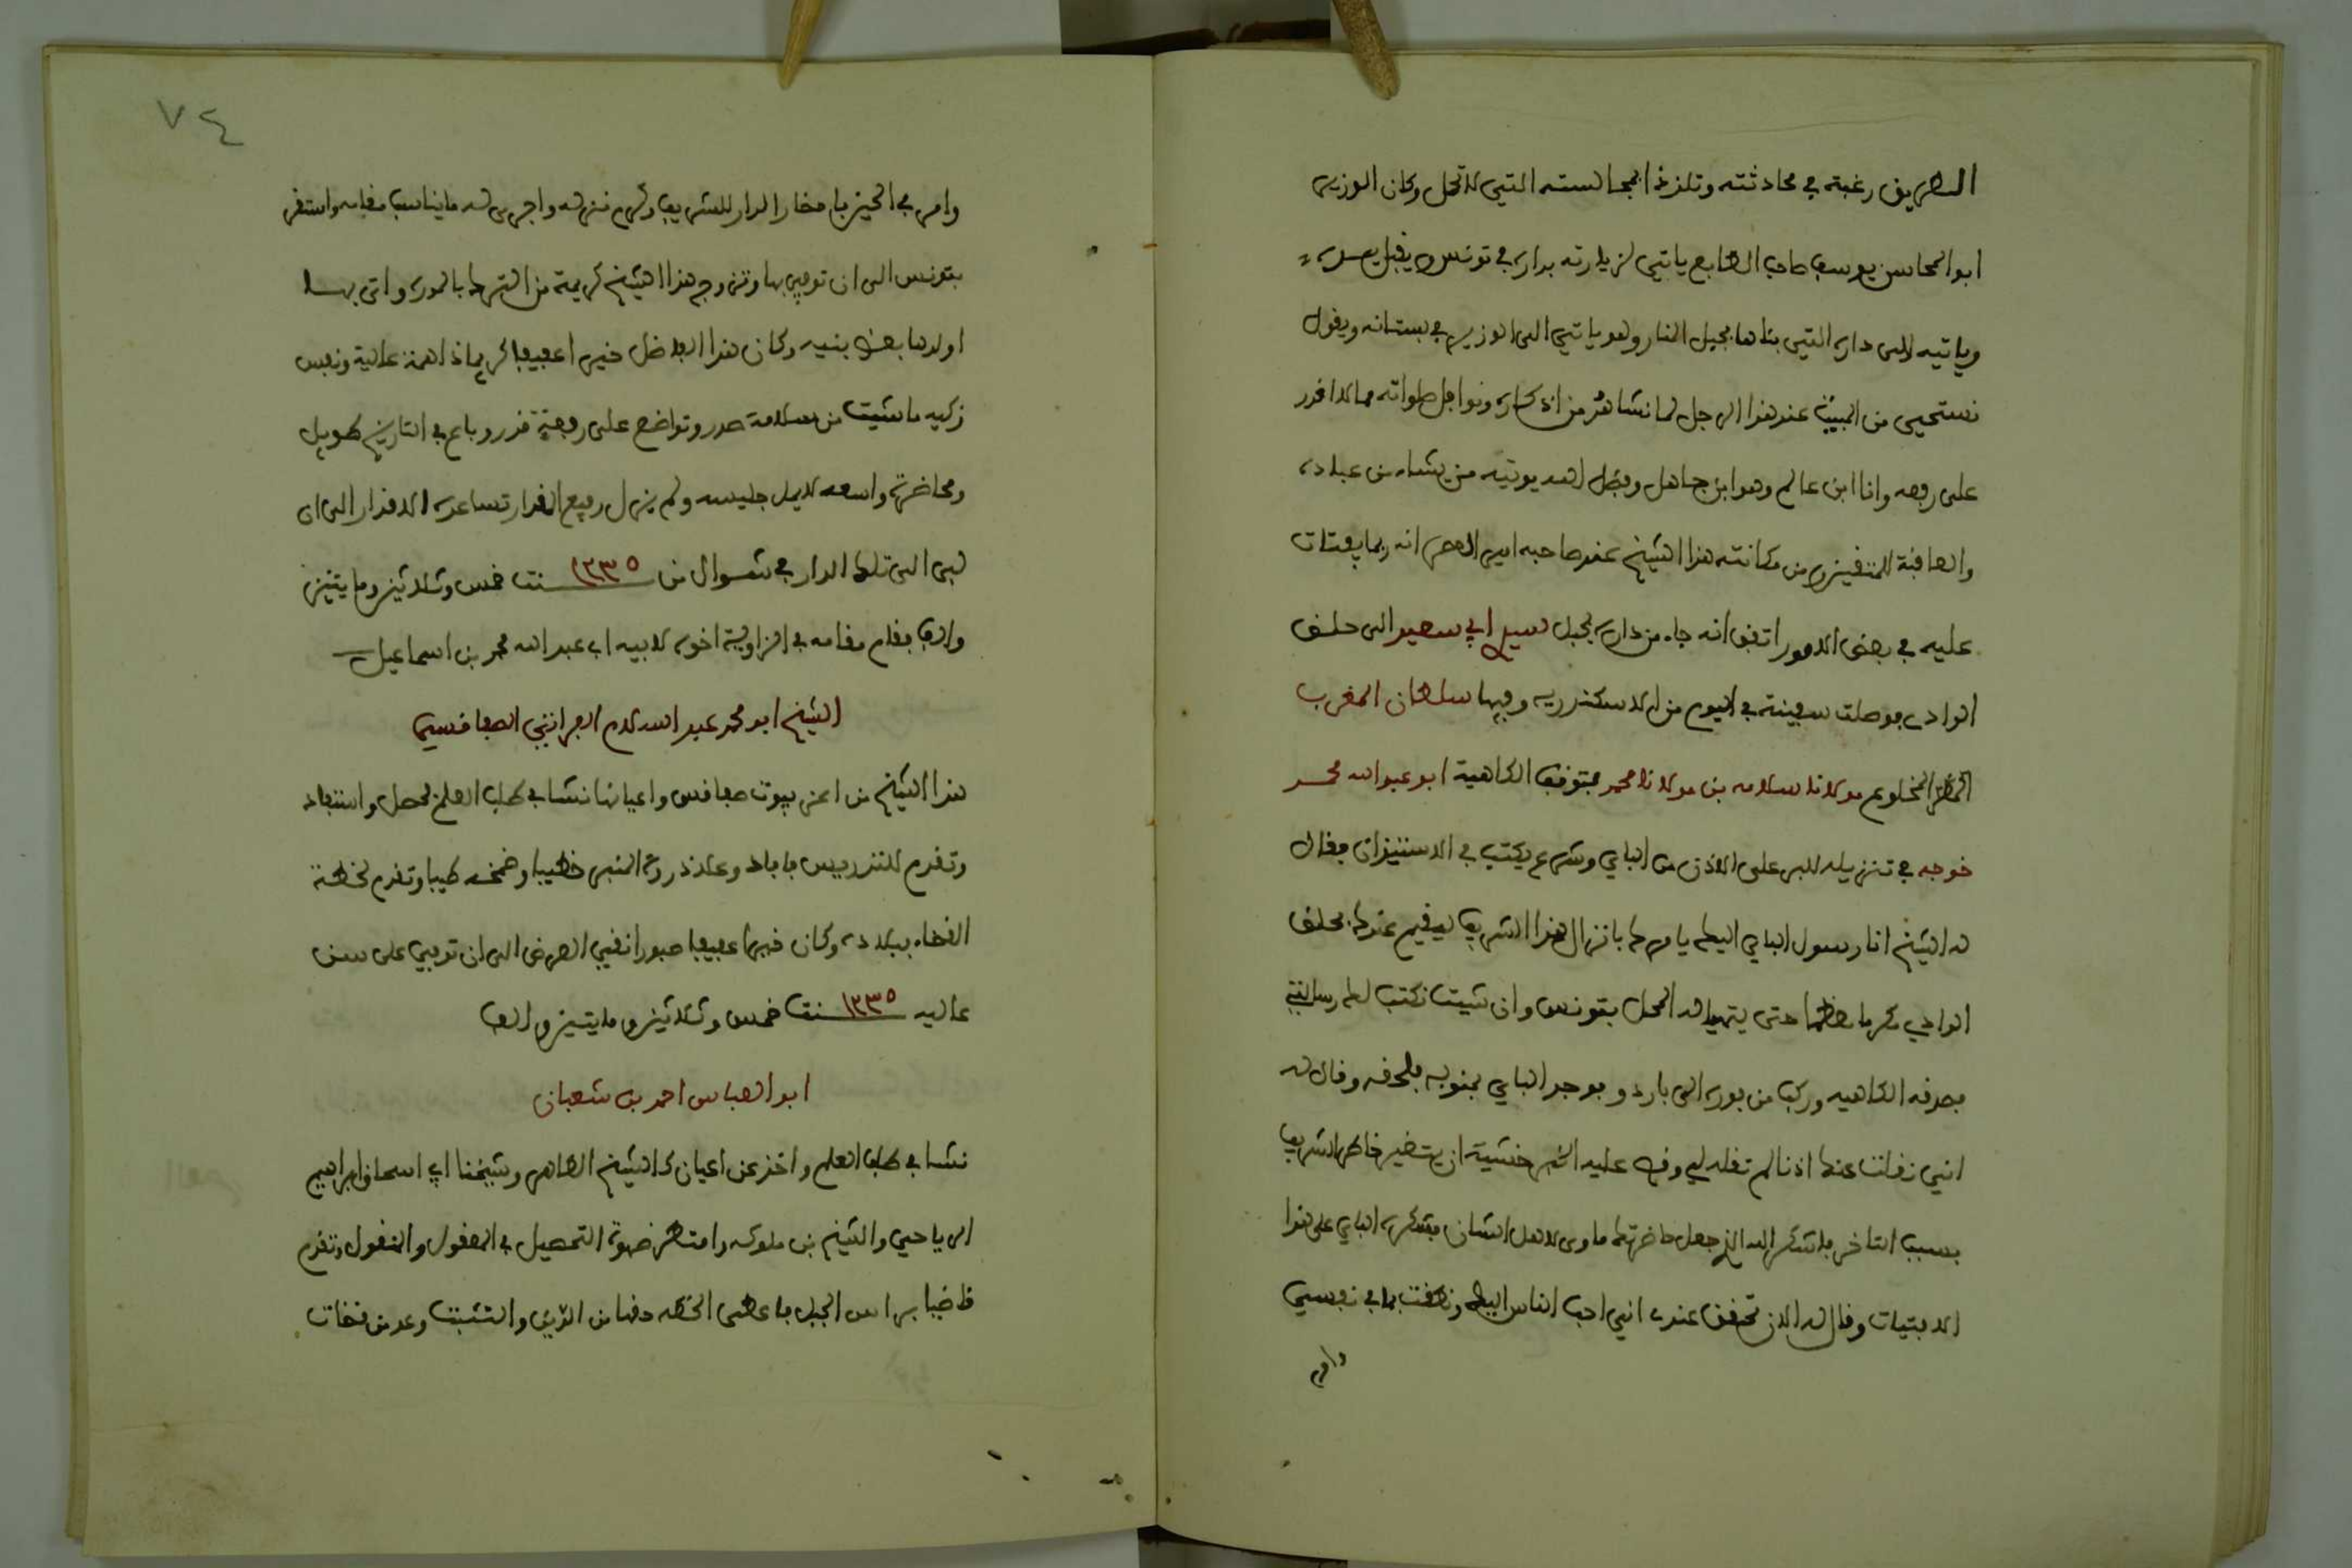 الطريق رغبة في محادثته وتلذذا بمجالسته التي لا تمل وكان الوزير
ابو المحاسن يوسف صاحب الطابع ياتي لزيارته بداره في تونس ويقبل يده
وياتيه الى داره التي بناها بجبل المنار وهو ياتي الى الوزير في بستانه ويقول
نستحيي من المبيت عند هذا الرجل لما نشاهد من اذكاره ونوافل صلواته مما لا اقدر
على ربعه وانا ابن عالم وهو ابن جاهل وفضل الله يوتيه من يشاء من عباده
والعاقبة للمتقين ومن مكانته هذا الشيخ عند صاحبه امير العصر انه ربما يفتات
عليه في بعض الامور اتفق انه جاء من داره بجبل سيدي ابي سعيد الى حلق
الوادي فوصلت سفينة في اليوم من الاسكندريه وفيها سلطان المغرب
المخلوع مولانا سلامه بن مولانا محمد فتوقف الكاهية ابو عبد الله محمد
خوجه في تنزيله للبر على الاذن من الباي وشرع يكتب في الاستيذان فقال
له الشيخ انا رسول الباي اليك يامرك بانزال هذا الشريف ليقيم عندك بحلق
الوادي مكرما معظما حتى يتهيا له المحل بتونس وان شيت نكتب لك رسالتي
فصدقه الكاهيه وركب من فوره الى باردو فوجد الباي بمنوبه فلحقه وقال له
اني نقلت عنك اذنا لم تقله لي وقص عليه الخبر خشية ان يتغير خاطر الشريف
بسبب التاخر فاشكر الله الذي جعل حاضرتك ماوى لاهل الشان فشكره الباي على هذا
الافتيات وقال له الان تحقق عندي اني احب الناس اليك ونطقت بما في نفسي
وامر
٧٤
وامر في الحين باحضار الدار للشريف وكرم نزله واجرى له ما يناسب مقامه واستقر
بتونس الى ان توفي بها وتزوج هذا الشيخ كريمة من التركه بالموره واتى بها
اولدها بعض بنيه وكان هذا الفاضل خيرا عفيفا كريما ذا همة عالية ونفس
زكيه ما شيت من سلامة صدر وتواضع على رفعة قدر وباع في التاريخ طويل
ومحاضرة واسعه لا يمل جليسه ولم يزل رفيع المقدار تساعده الاقدار الى ان
لبى الى تلك الدار في شوال من سنة ١٢٣٥ خمس وثلاثين ومايتين
والف فقام مقامه في الزاوية اخوه لابيه ابي عبد الله محمد بن اسماعيل
الشيخ ابو محمد عبد السلام الفراتي الصفاقسي
هذا الشيخ من اعز بيوت صفاقس واعيانها نشا في طلب العلم فحصل واستفاد
وتقدم للتدريس فافاد وعلا ذروة المنبر خطيبا وضمخه طيبا وتقدم لخطة
القضاء ببلاده وكان خيرا عفيفا صبورا نقي العرض الى ان توفي على سن
عاليه سنة ١٢٣٥ خمس وثلاثين ومايتين والف
ابو العباس احمد بن شعبان
نشا في طلب العلم واخذ عن اعيان كالشيخ الطاهر وشيخنا ابي اسحاق ابراهيم
الرياحي والشيخ بن ملوكه وامتطى صهوة التحصيل في المعقول والمنقول وتقدم
قاضيا براس الجبل فاعطى الخطه حقها من التاني والتثبت وعد من قضات